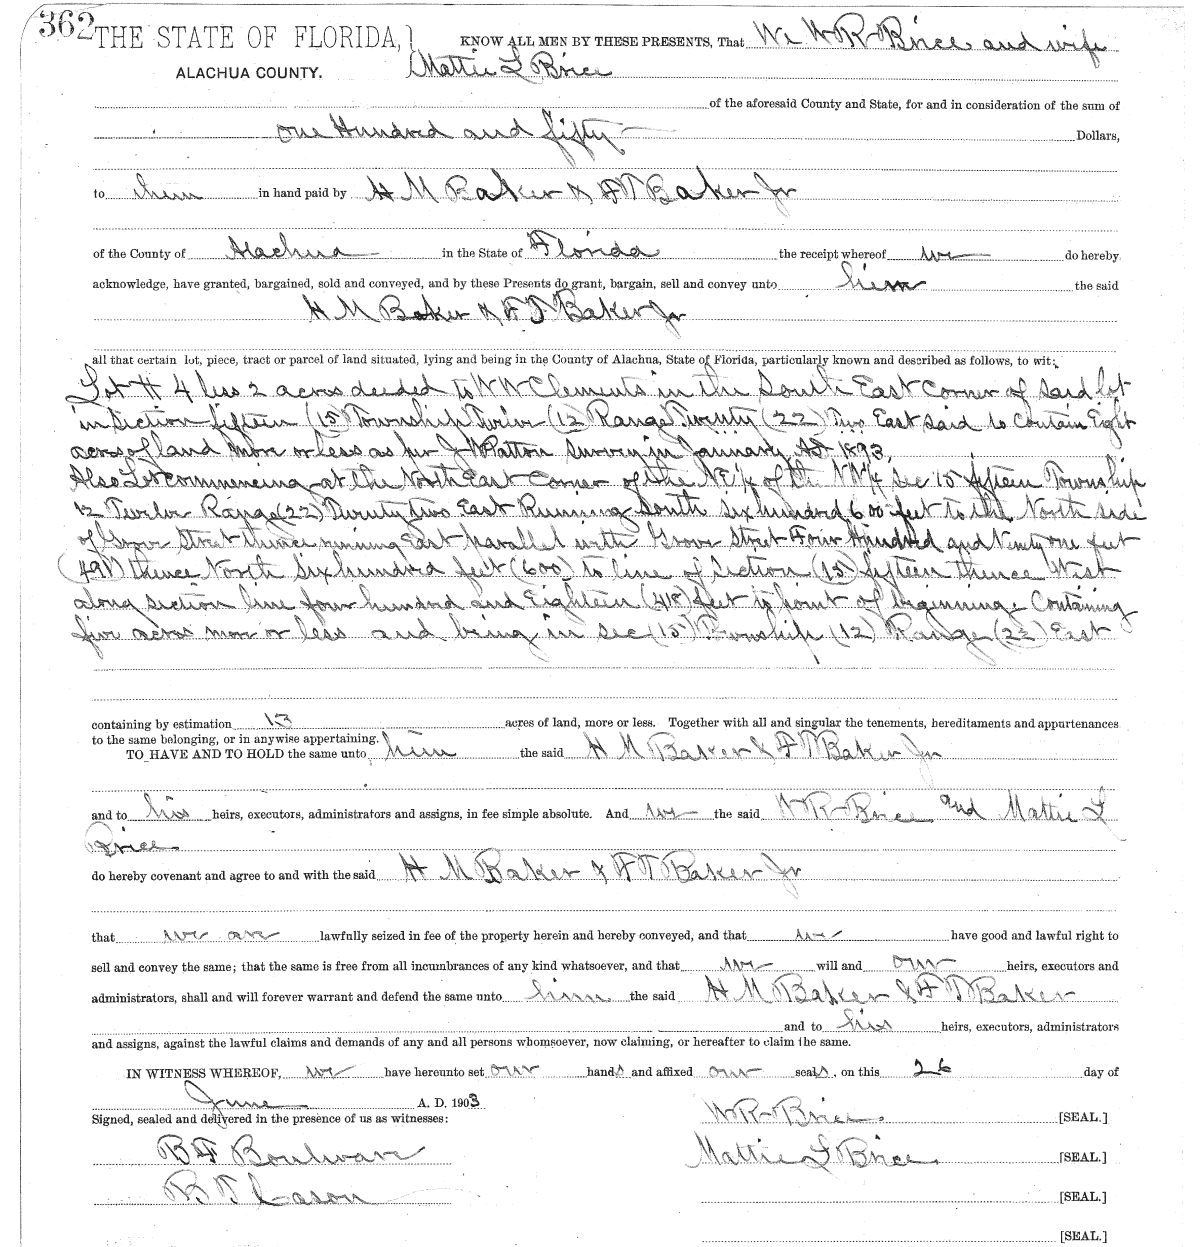 362
THE STATE OF FLORIDA,} KNOW ALL MEN BY THESE PRESENTS, That We W R Brice and wife
ALACHUA COUNTY. Mattie L Brice
of the aforesaid County and State, for and in consideration of the sum of
one Hundred and fifty Dollars,
to him in hand paid by H M Baker & F T Baker Jr
of the County of Alachua in the State of Florida the receipt whereof we do hereby
acknowledge, have granted, bargained, sold and conveyed, and by these Presents do grant, bargain, sell and convey unto him the said
H M Baker & F T Baker Jr
all that certain lot, piece, tract or parcel of land situated, lying and being in the County of Alachua, State of Florida, particularly known and described as follows, to wit:
Lot # 4 less 2 acres deeded to W W Clements in the South East Corner of said lot
in Section fifteen (15) Township (12) Range Twenty (22) Two East said to Contain Eight
acres of land more or less as per J W Patton Survey in January AD 1893,
Also Lot commencing at the North East Corner of the NE 1/4 of the NW 1/4 Sec 15 fifteen Township
12 Twelve Range (22) Twenty two East Running South Six hundred 600 feet to the North side
of Grove Street thence running East parallel with Grove Street Four Hundred and Ninty one feet
(491) thence North Six hundred feet (600) to line of Section (15) fifteen thence West
along section line four hundred and Eighteen (418) feet to point of beginning. Containing
five acres more or less and being in sec (15) Township (12) Range (22) East
containing by estimation 13 acres of land, more or less. Together with all and singular the tenements, hereditaments and appurtenances
to the same belonging, or in anywise appertaining.
TO HAVE AND TO HOLD the same unto him the said H M Baker & F T Baker Jr
and to his heirs, executors, administrators and assigns, in fee simple absolute. And we the said W R Brice and Mattie L
Brice
do hereby covenant and agree to and with the said H M Baker & F T Baker Jr
that we are lawfully seized in fee of the property herein and hereby conveyed, and that we have good and lawful right to
sell and convey the same; that the same is free from all incumbrances of any kind whatsoever, and that we will and our heirs, executors and
administrators, shall and will forever warrant and defend the same unto him the said H M Baker & F T Baker
and to his heirs, executors, administrators
and assigns, against the lawful claims and demands of any and all persons whomsoever, now claiming, or hereafter to claim the same.
IN WITNESS WHEREOF, we have hereunto set our hands and affixed our seals, on this 26 day of
June A. D. 1903
Signed, sealed and delivered in the presence of us as witnesses: W R Brice. [SEAL.]
B F Boulware Mattie L Brice. [SEAL.]
B T Cason [SEAL.]
[SEAL.]